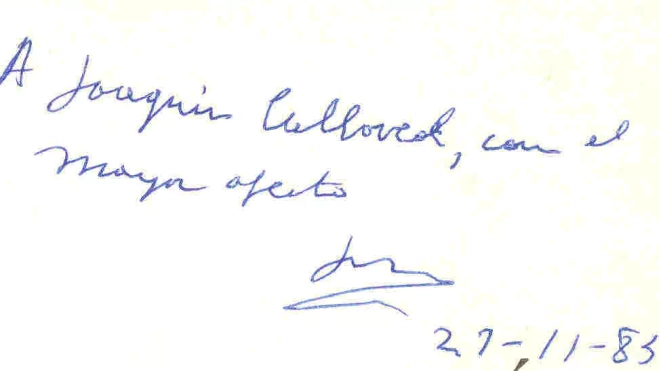 A Joaquin Calloved, con el
mayor afecto
27-11-83